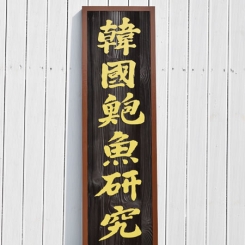 韓國鮑魚研究